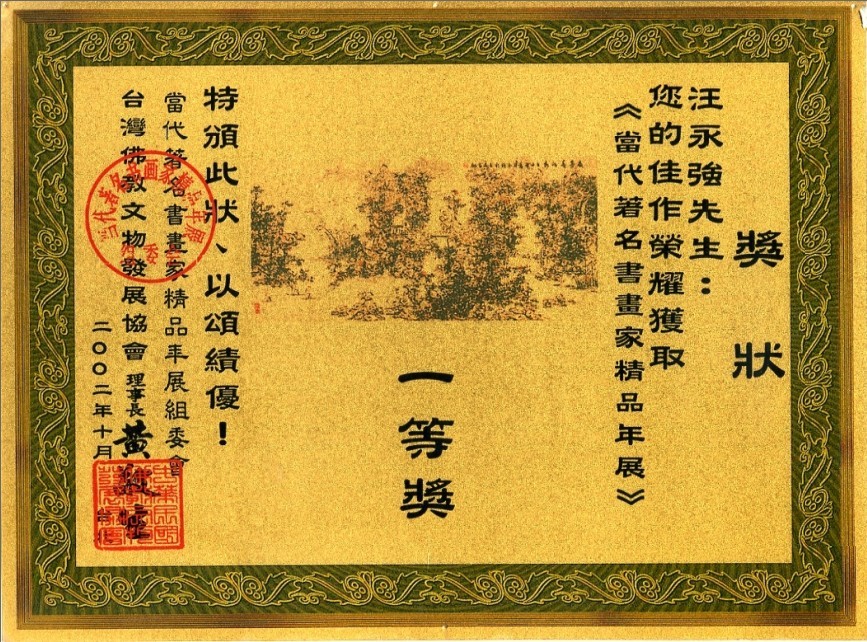 獎狀
汪永強先生：
您的佳作榮耀獲取
《當代著名書畫家精品年展》
一等獎
特頒此狀、以頌績優！
當代著名書畫家精品年展組委會
台灣佛教文物發展協會 理事長 黃
二〇〇二年十月 台北